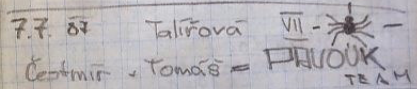 7.7. 87 Talířová VII -
Čestmír, Tomáš = PAVOUK
TEAM